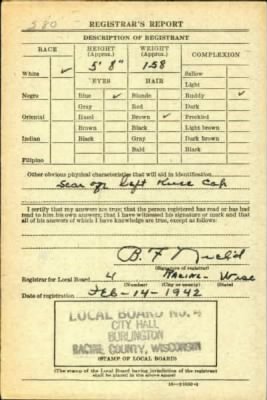 580
REGISTRAR'S REPORT
DESCRIPTION OF REGISTRANT
RACE HEIGHT (Approx.) WEIGHT (Approx.) COMPLEXION
White ✓ 5' 8" 158 Sallow
Light
EYES HAIR
Negro Blue ✓ Blonde Ruddy ✓
Gray Red Dark
Oriental Hazel Brown ✓ Freckled
Brown Black Light brown
Indian Black Gray Dark brown
Bald Black
Filipino
Other obvious physical characteristics that will aid in identification
Scar on Left Knee Cap
I certify that my answers are true; that the person registered has read or has had
read to him his own answers; that I have witnessed his signature or mark and that
all of his answers of which I have knowledge are true, except as follows:
B. F.
(Signature of registrar)
Registrar for Local Board 4 RACINE- Wisc
(Number) (City or county) (State)
Date of registration FEB-14-1942
LOCAL BOARD NO. 4
CITY HALL
BURLINGTON
RACINE COUNTY, WISCONSIN
(STAMP OF LOCAL BOARD)
(The stamp of the Local Board having jurisdiction of the registrant
shall be placed in the above space.)